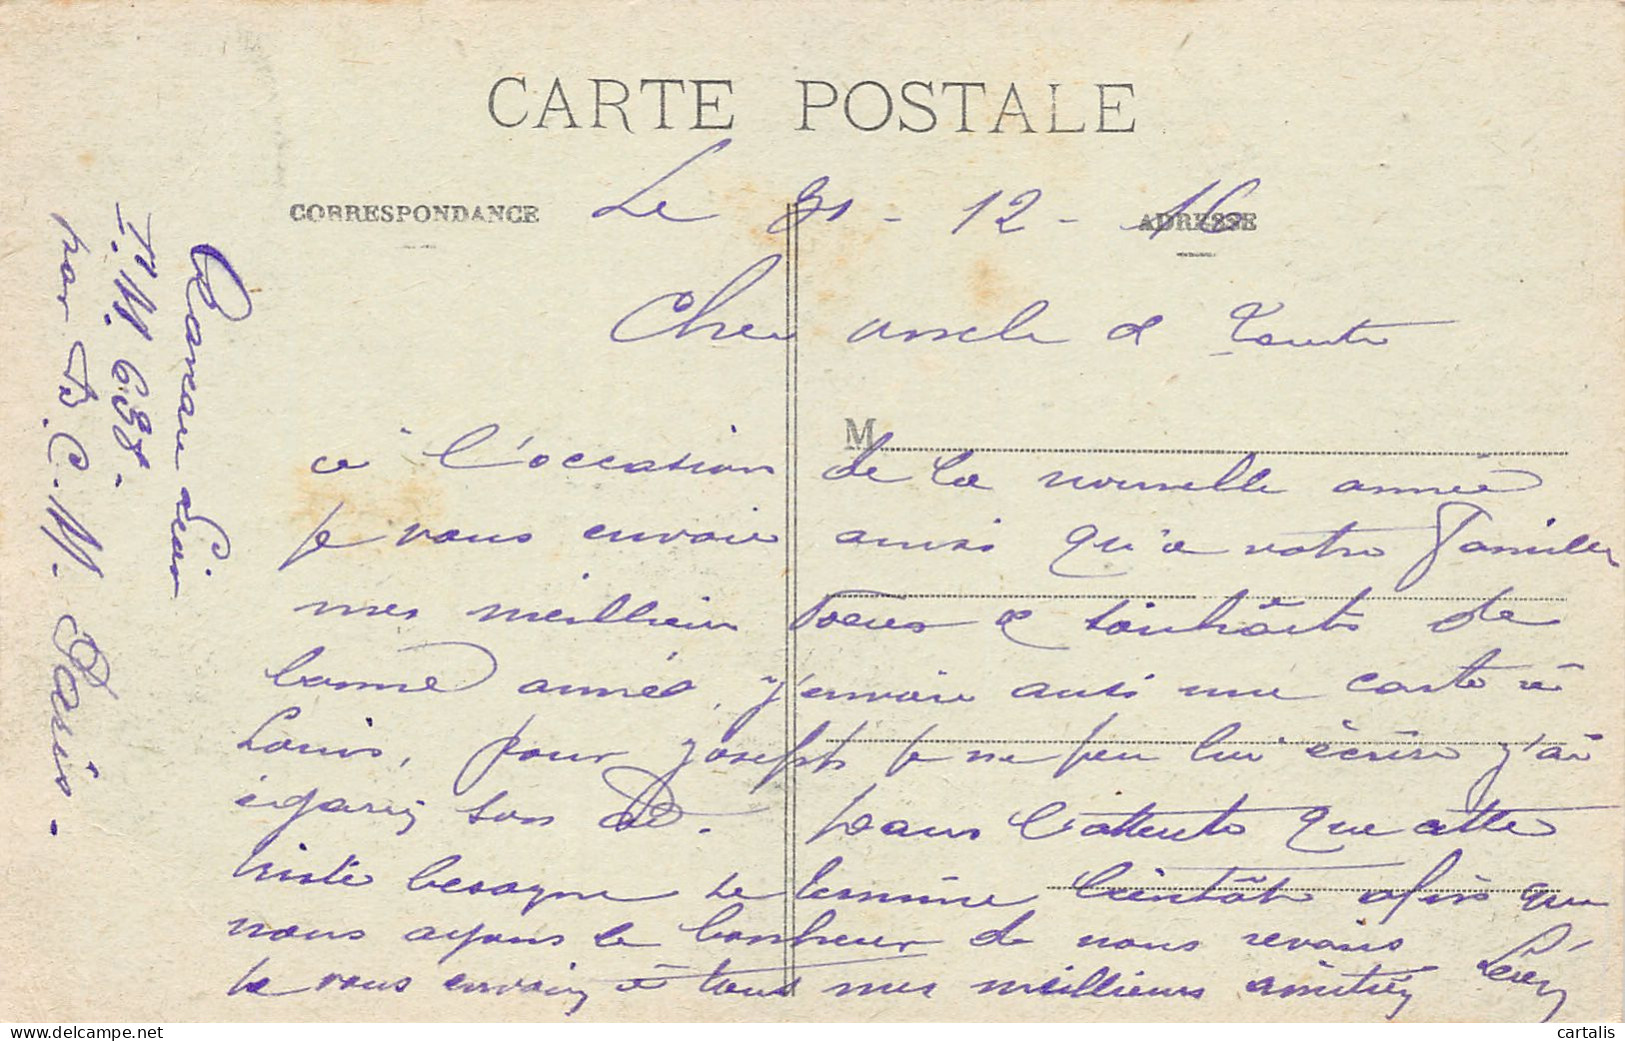 CARTE POSTALE
CORRESPONDANCE
ADRESSE
Le 31 - 12 - 16
Cher oncle & Tante
M
à l'occasion de la nouvelle année
je vous envoie ainsi qu'a votre Famille
mes meilleurs voeux & souhaits de
bonne année, j'envoie aussi une carte à
Louis, pour Joseph je ne peu lui écrire j'ai
égaréz son ad. Dans l'attente que cette
triste besogne se termine bientôt afin que
nous ayons le bonheur de nous revoir
Je vous envoiz à tous mes meilleurs amitiéz
par B.C.M. Paris.
cartalis
delcampe.net